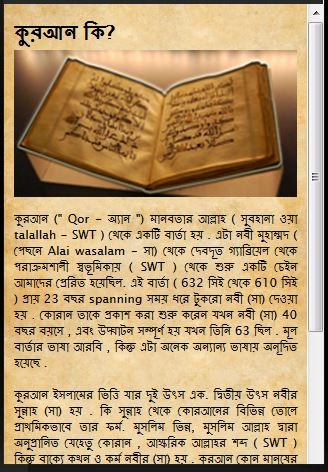 কুরআন কি?
কুরআন (" Qor - অ্যান ") মানবতার আল্লাহ ( সুবহানা ওয়া
talallah - SWT ) থেকে একটি বার্তা হয় . এটা নবী মুহাম্মদ (
পেছনে Alai wasalam - সা) থেকে দেবদূত গ্যাব্রিয়েল থেকে
পরাক্রমশালী স্বভূমিকায় ( SWT ) থেকে শুরু একটি চেইন
আমাদের প্রেরিত হয়েছিল. এই বার্তা ( 632 সিই থেকে 610 সিই
) প্রায় 23 বছর spanning সময় ধরে টুকরো নবী (সা) দেওয়া
হয় . কোরান তাকে প্রকাশ করা শুরু করেন যখন নবী (সা) 40
বছর বয়সে , এবং উদ্ঘাটন সম্পূর্ণ হয় যখন তিনি 63 ছিল . মূল
বার্তার ভাষা আরবি , কিন্তু এটা অনেক অন্যান্য ভাষায় অনূদিত
হয়েছে .
কুরআন ইসলামের ভিত্তি যার দুই উৎস এক. দ্বিতীয় উৎস নবীর
সুন্নাহ (সা) হয় . কি সুন্নাহ থেকে কোরআনের বিভিন্ন তোলে
প্রাথমিকভাবে তার ফর্ম. মুসলিম ভিন্ন, মুসলিম আহ্মাদ দ্বারা
অনুপ্রানিত যেহেতু কোরান , আক্ষরিক আল্লাহর শব্দ ( SWT )
কিন্তু বাক্যে কথন ও কর্ম নবীর (সা) হয় . কুরআন কোন মানুষের